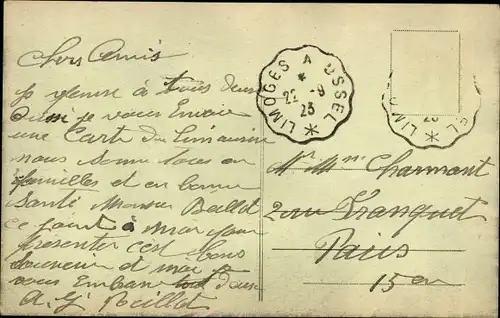 Chers Amis
Je pense à tous deux
aussi je vous Envoie
une Carte du Limousin
nous somme tous en
familles et en bonne
Santé Monsieur Baillet
ce joint à moi pour
presenter c'est bons
souvenir et moi je
vous Embrasse tout deux
A. G. Poillet
LIMOGES A USSEL
*
22 -9
23
Mr Mme Charmant
2 rue Franquet
Paris
15 em
LIM
EL
23